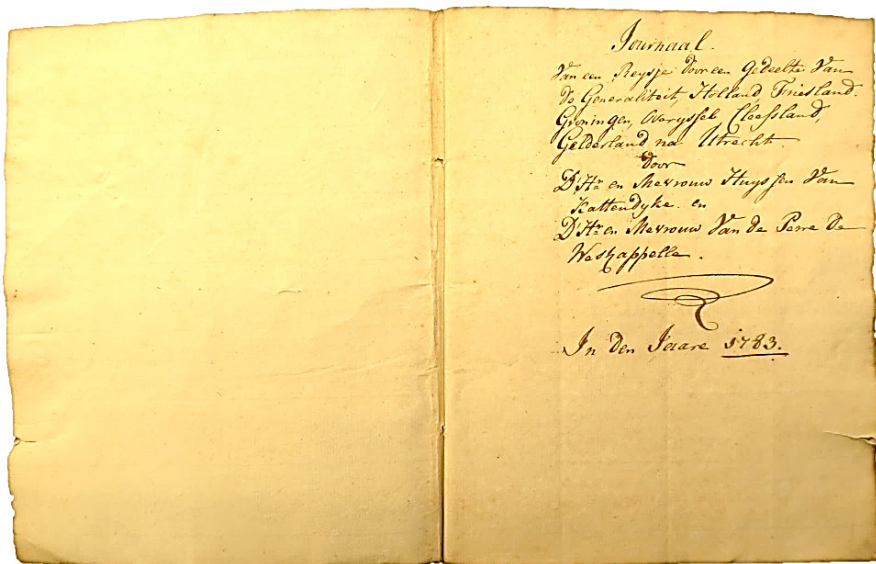 Journaal.
Van een Reysje door een Gedeelte Van
De Generaliteit, Holland Friesland.
Groningen, Overyssel, Cleefsland,
Gelderland na Utrecht.
Door
D'Hr en Mevrouw Huyssen Van
Kattendyke. en
D'Hr en Mevrouw Van de Perre De
Weskappelle.
In den Jaare 1783.